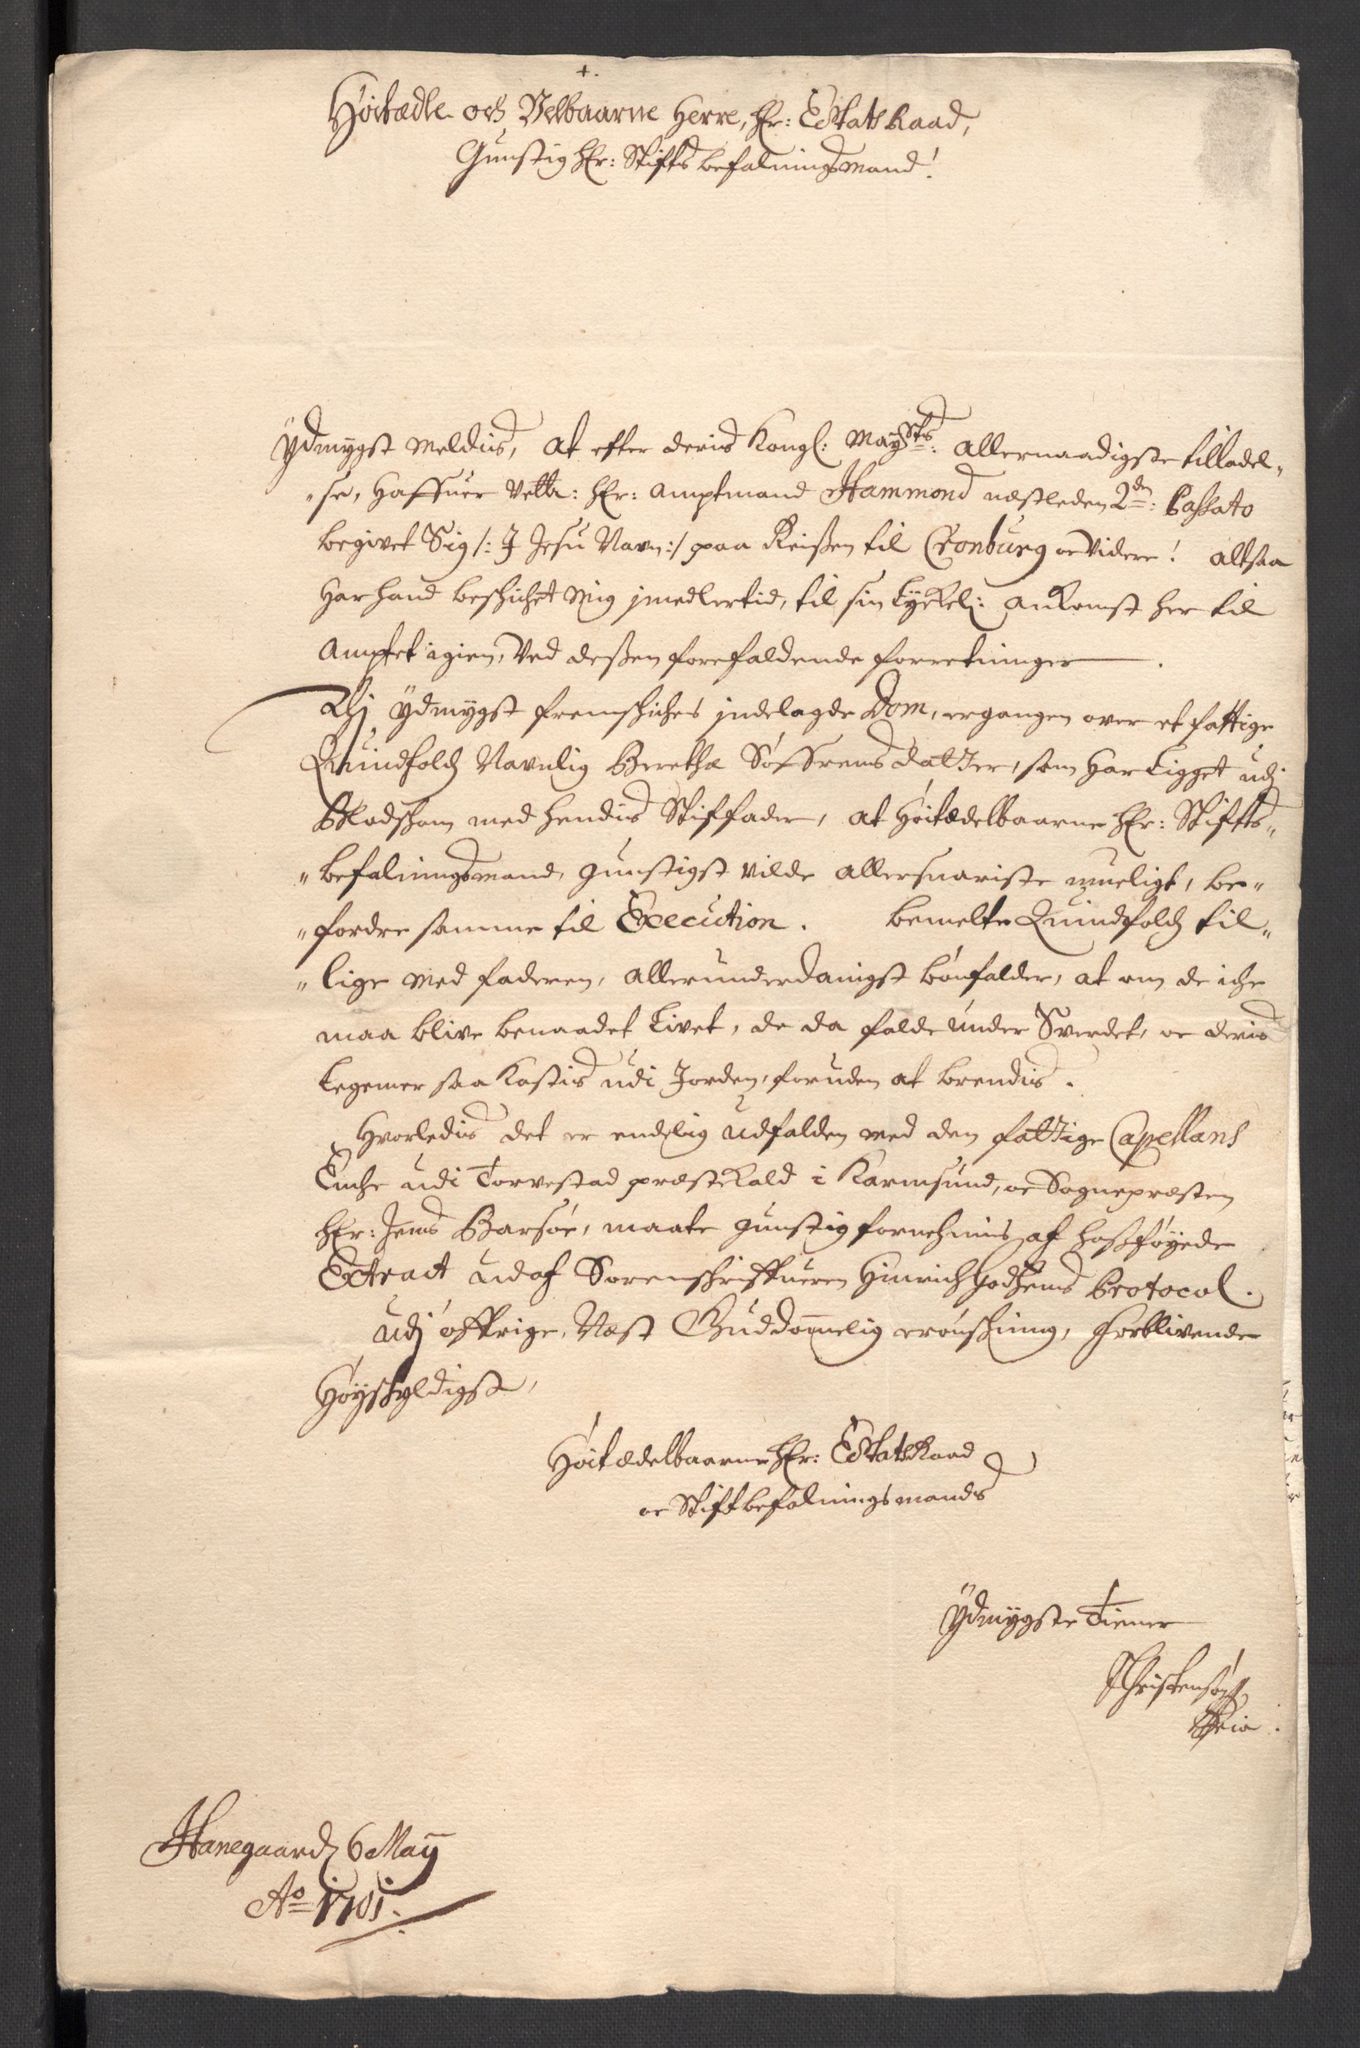 Höitædle och Velbaarne Herre, Hr: Estats Raad,
Gunstig Hr: Stifts befalningsmand!
Ydmygst meldis, at efter deris Kongl: Mayts: allernaadigste tilladel-
se, haffuer Velb: Hr: amptmand Hammond nestleden 2den: Passato
begivet Sig /: I Jesu Navn :/ paa Reisen til Cronburg oc videre! altsaa
har hand beschichet mig jmedlertid, til sin lyckel: ankomst her til
amptet igien, ved dessen forefaldende forretninger.
Thj ydmygst fremschiches jndelagde Dom, ergangen over et fattige
Quindfolch Navnlig Berethe Søffrensdatter, som har ligget udj
Blodscham med hendis Stiffader, at Höitædelbaarne Hr: Stiffts-
befalningsmand, gunstigst vilde allersnariste mueligt, be-
fordre samme til Execution. bemelte Quindfolch til-
lige med faderen, allerunderdanigst bönfalder, at om de iche
maa blive benaadet Livet, de da falde under Sverdet, oc deris
Legemer saa kastis udi Jorden, foruden at brendis.
Hvorledis det er endelig udfalden med den fattige Capellans
Enche udi Torvestad præstekald i Karmsund, oc Sognepræsten
Hr: Jens Barsöe, maate gunstig fornehmis af hosföyede
Extract udaf Sorenschriffueren Hinrich Godzens Protocol.
udj öffrige, Næst Guddommelig erönschning, forblivende
Höyschyldigst,
Höitædelbaarne Hr: Estats Raad
oc Stiftbefalningsmands
Ydmygste Tiener
Christensön
Hanegaard 6 Maij
Ao 1701.